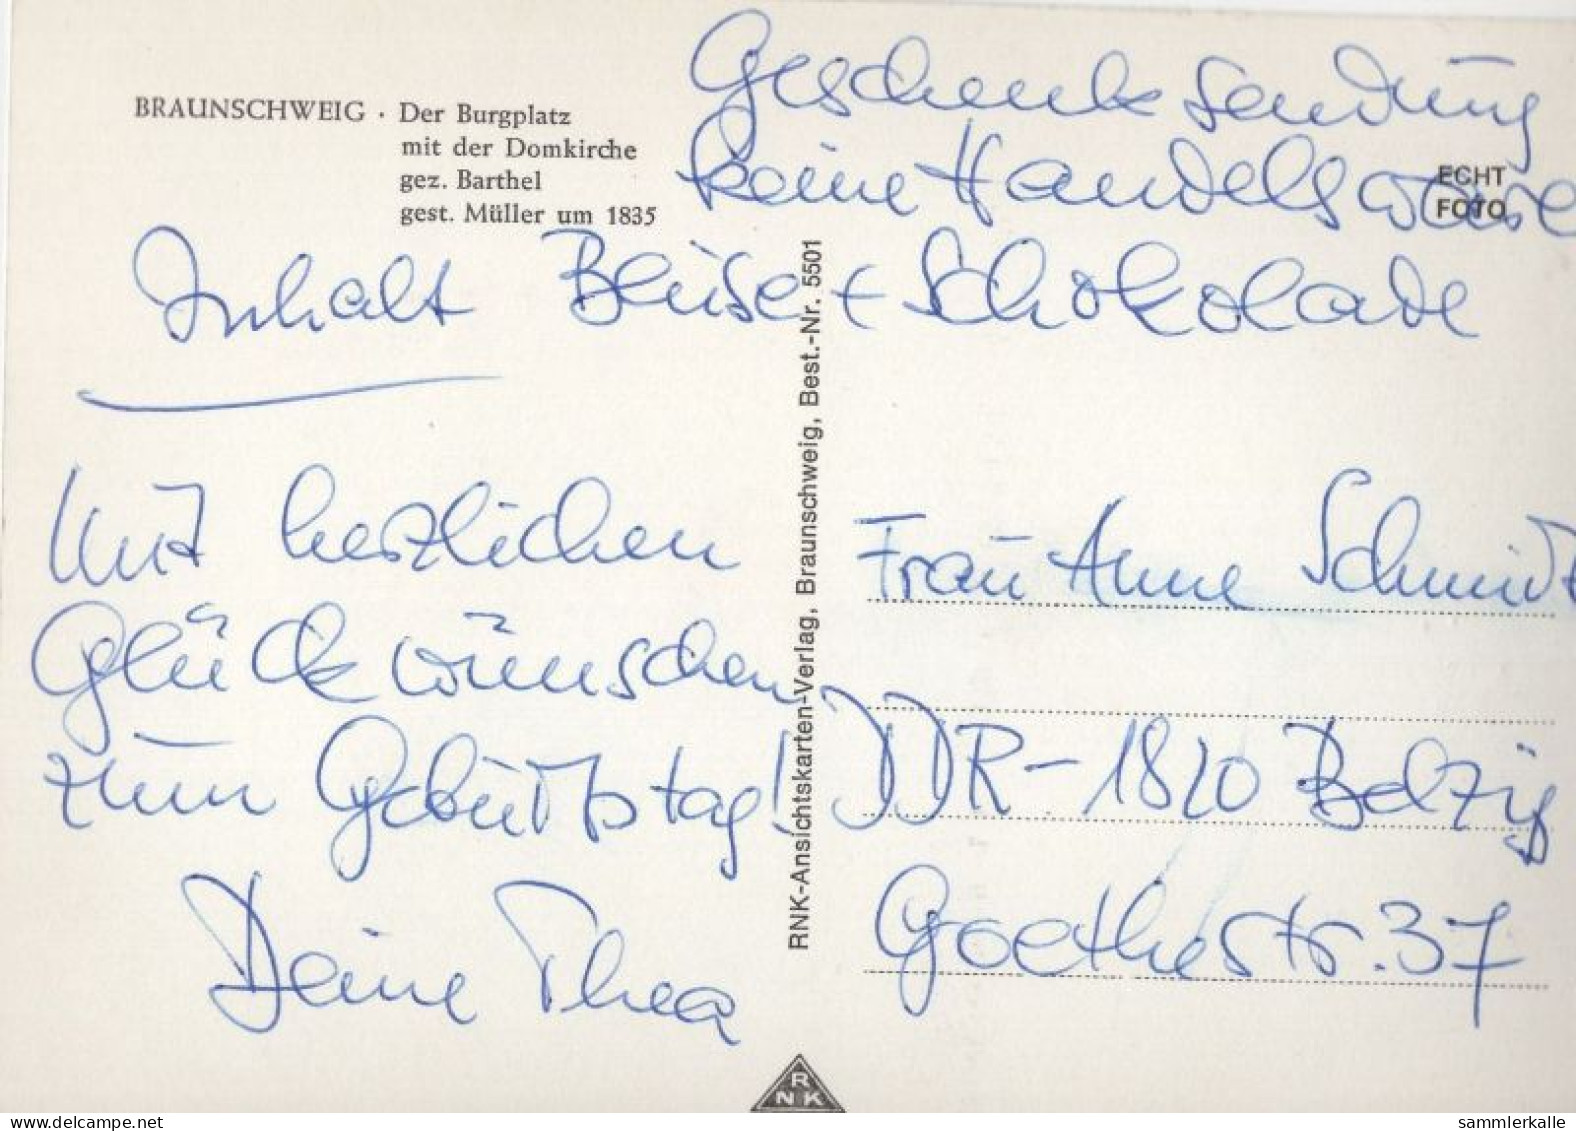 Geschenksendung
keine Handelsware
BRAUNSCHWEIG · Der Burgplatz
mit der Domkirche
gez. Barthel
gest. Müller um 1835
ECHT
FOTO
Inhalt Bluse + Schokolade
Mit herzlichen
Glückwünschen
zum Geburtstag!
Deine Thea
RNK-Ansichtskarten-Verlag, Braunschweig, Best.-Nr. 5501
Frau Anne Schmidt
DDR-1820 Belzig
Goethestr. 37
R
NK
www.delcampe.net
sammlerkalle